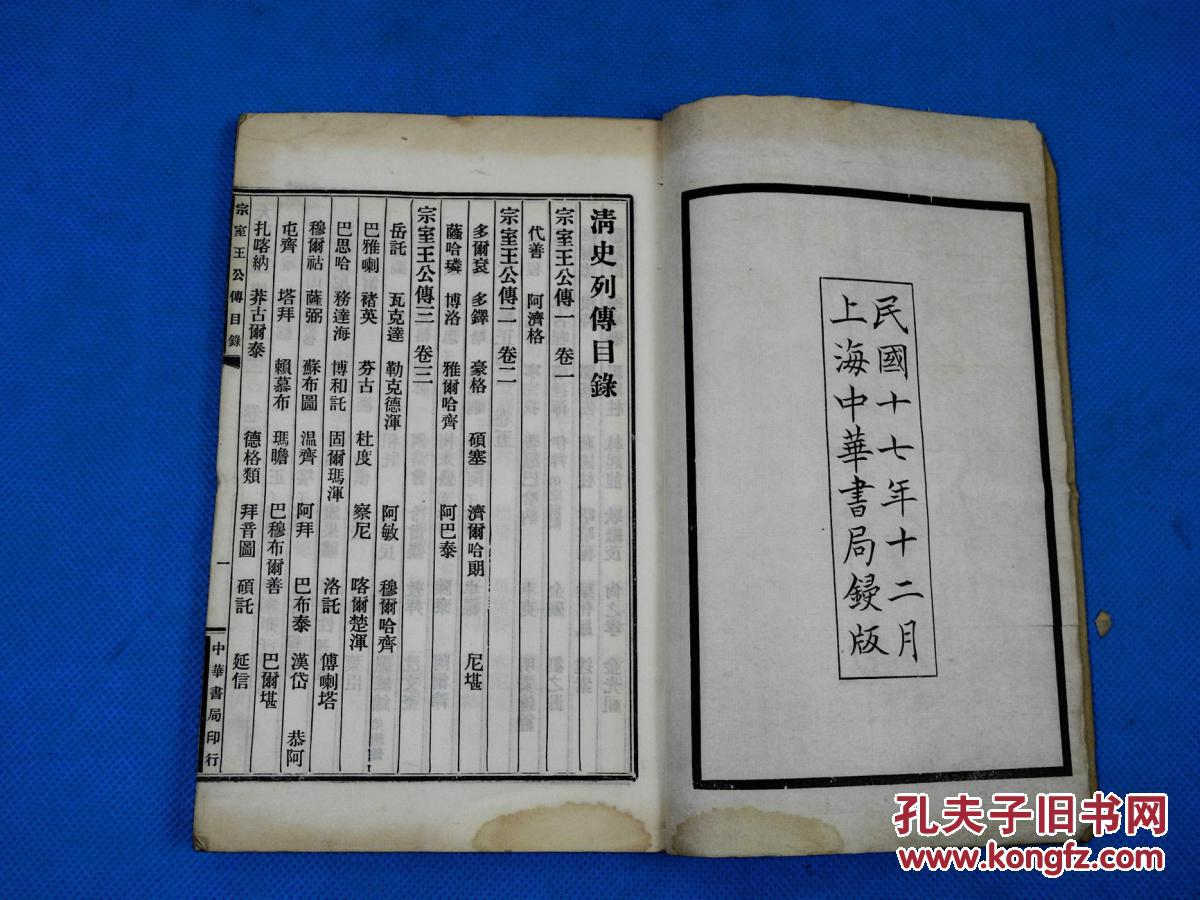 民國十七年十二月
上海中華書局鋟版
清史列傳目錄
宗室王公傳一 卷一
代善 阿濟格
宗室王公傳二 卷二
多爾袞 多鐸 豪格 碩塞 濟爾哈朗 尼堪
薩哈璘 博洛 雅爾哈齊 阿巴泰
宗室王公傳三 卷三
岳託 瓦克達 勒克德渾 阿敏 穆爾哈齊
巴雅喇 褚英 芬古 杜度 察尼 喀爾楚渾
巴思哈 務達海 博和託 固爾瑪渾 洛託 傅喇塔
穆爾祜 薩弼 蘇布圖 溫齊 阿拜 巴布泰 漢岱 恭阿
屯齊 塔拜 賴慕布 瑪瞻 巴穆布爾善 巴爾堪
扎喀納 莽古爾泰 德格類 拜音圖 碩託 延信
宗室王公傳目錄 一 中華書局印行
孔夫子旧书网
www.kongfz.com